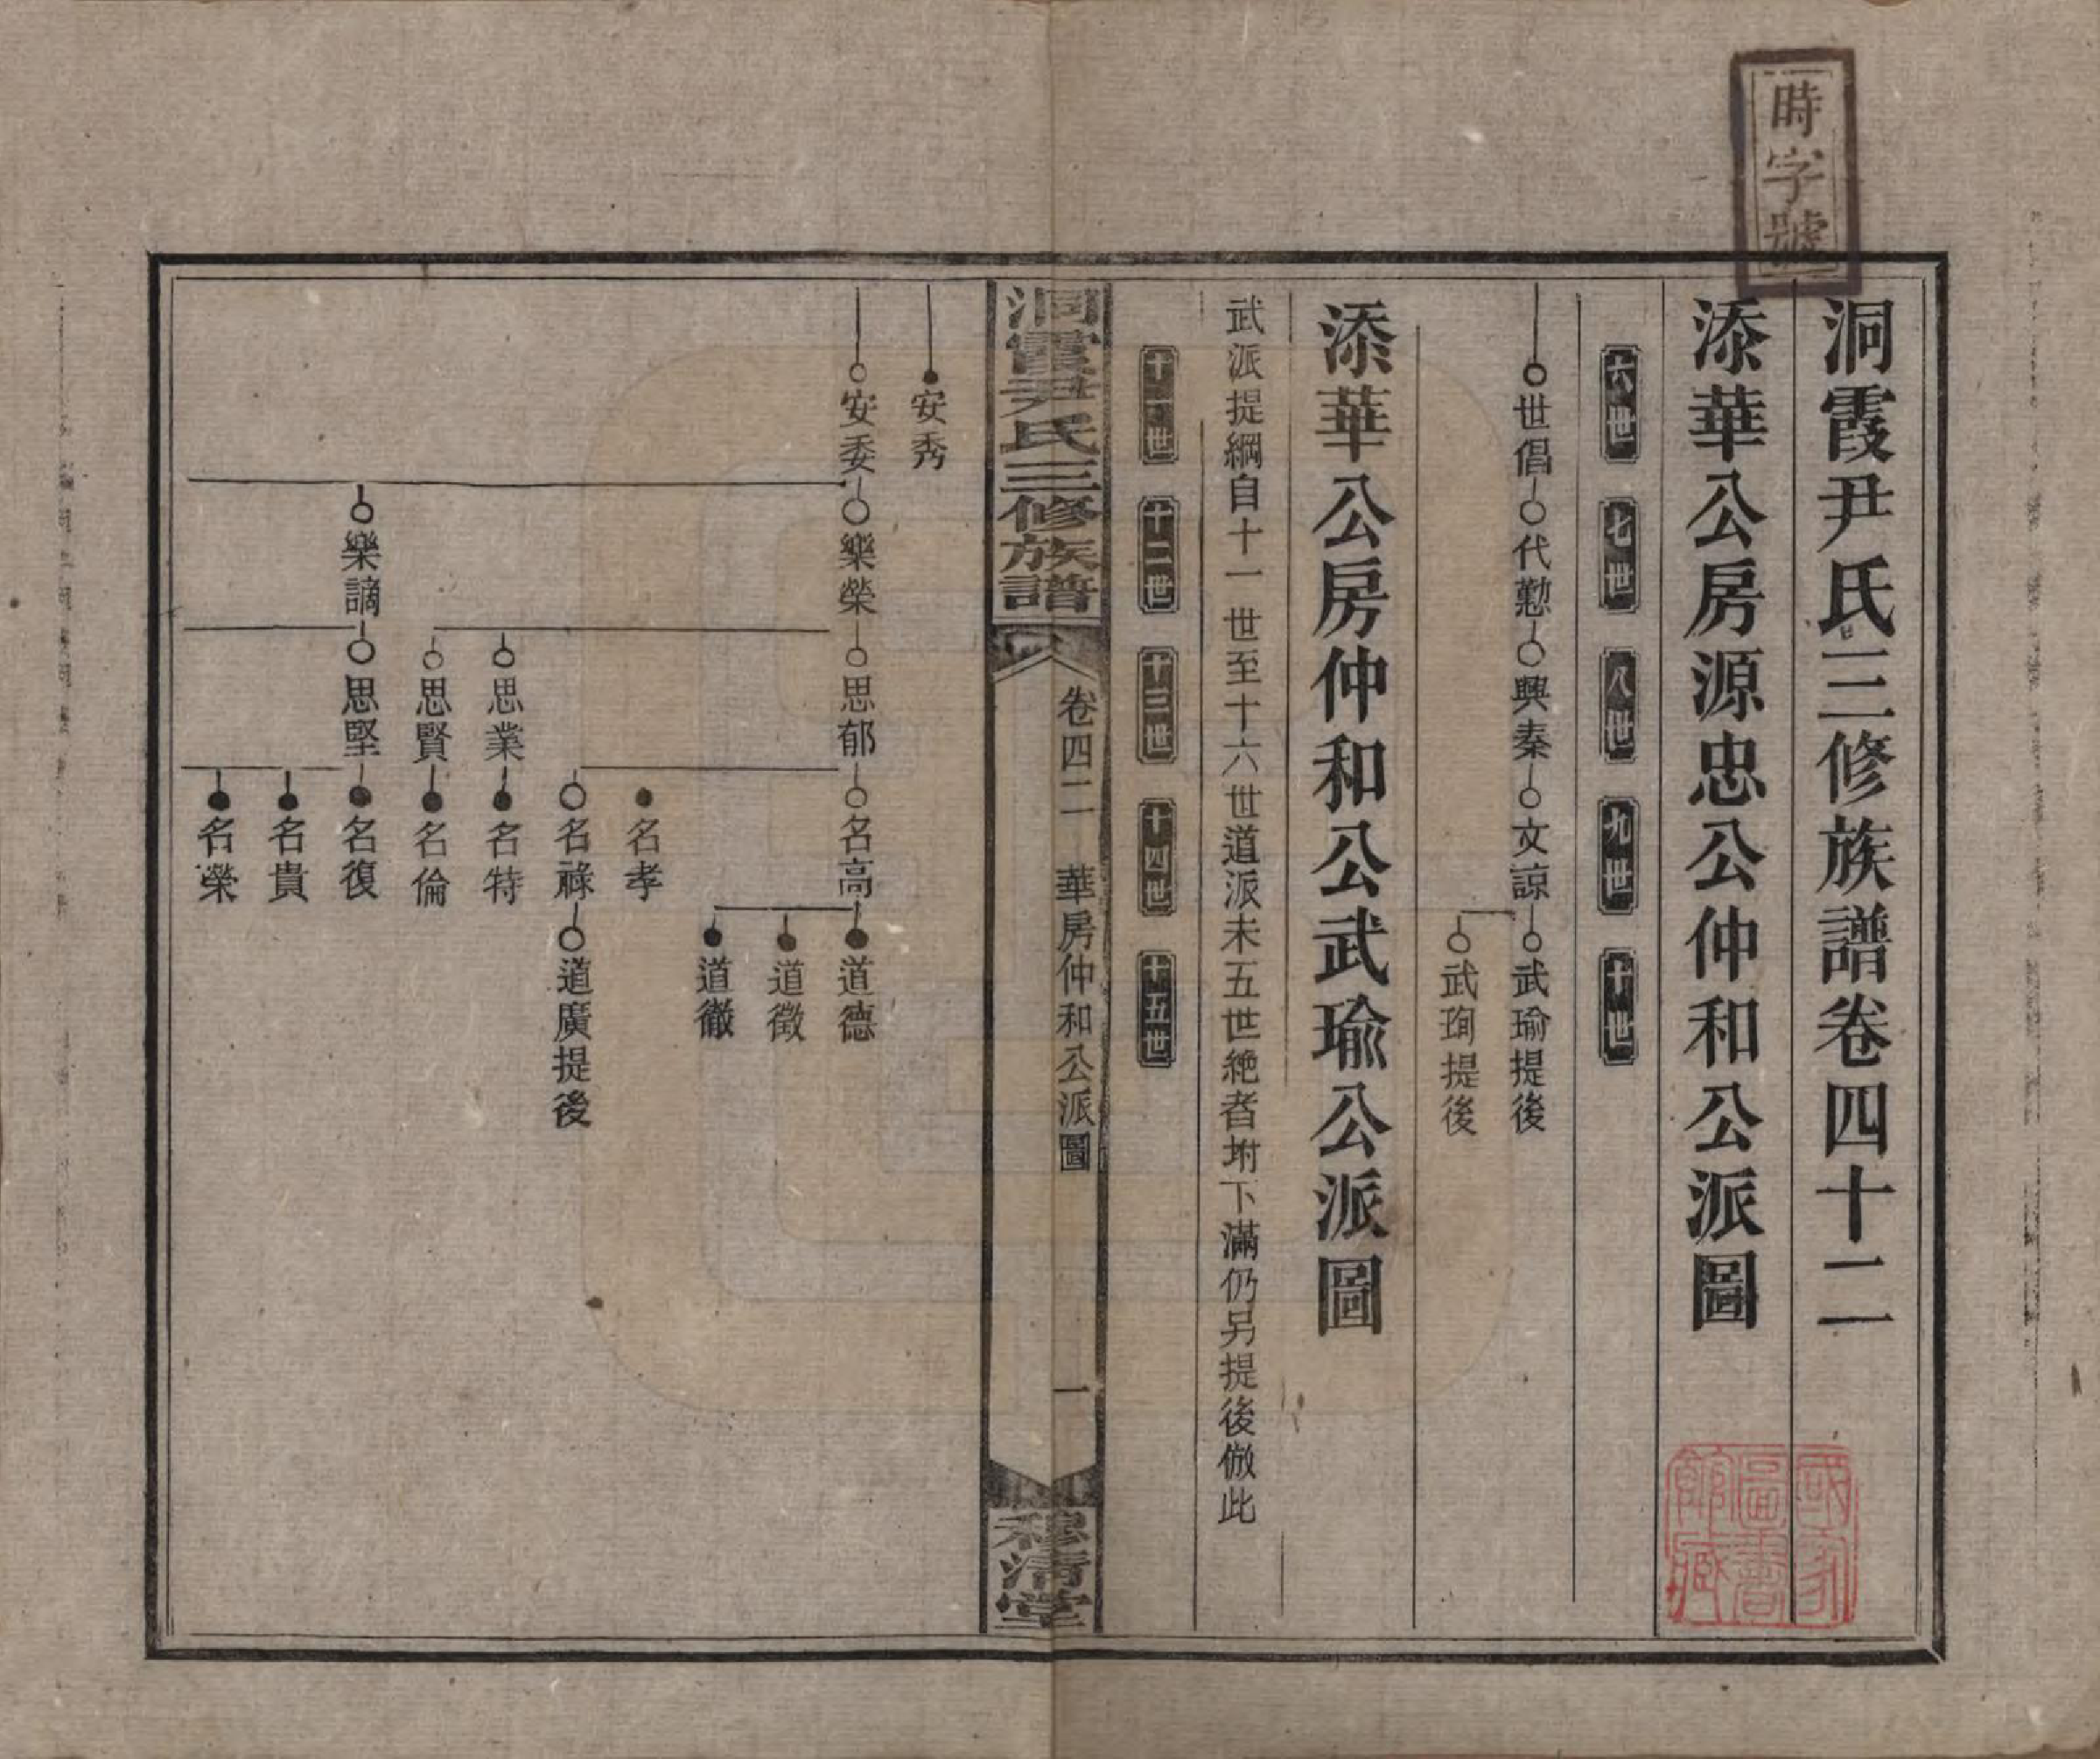 時字號
洞霞尹氏三修族譜卷四十二
添華公房源忠公仲和公派圖
六世 七世 八世 九世 十世
世倡 代懃 興秦 文諒 武瑜提後
武珣提後
添華公房仲和公武瑜公派圖
武派提綱自十一世至十六世道派未五世絶者坿下滿仍另提後倣此
十一世 十二世 十三世 十四世 十五世
洞霞尹氏三修族譜 卷四二 華房仲和公派圖 一 穆清堂
安秀
安委 樂榮 思郁 名高 道德
道徵
道徹
名孝
名祿 道廣提後
思業 名特
思賢 名倫
樂謫 思堅 名復
名貴
名榮
國家圖書館藏